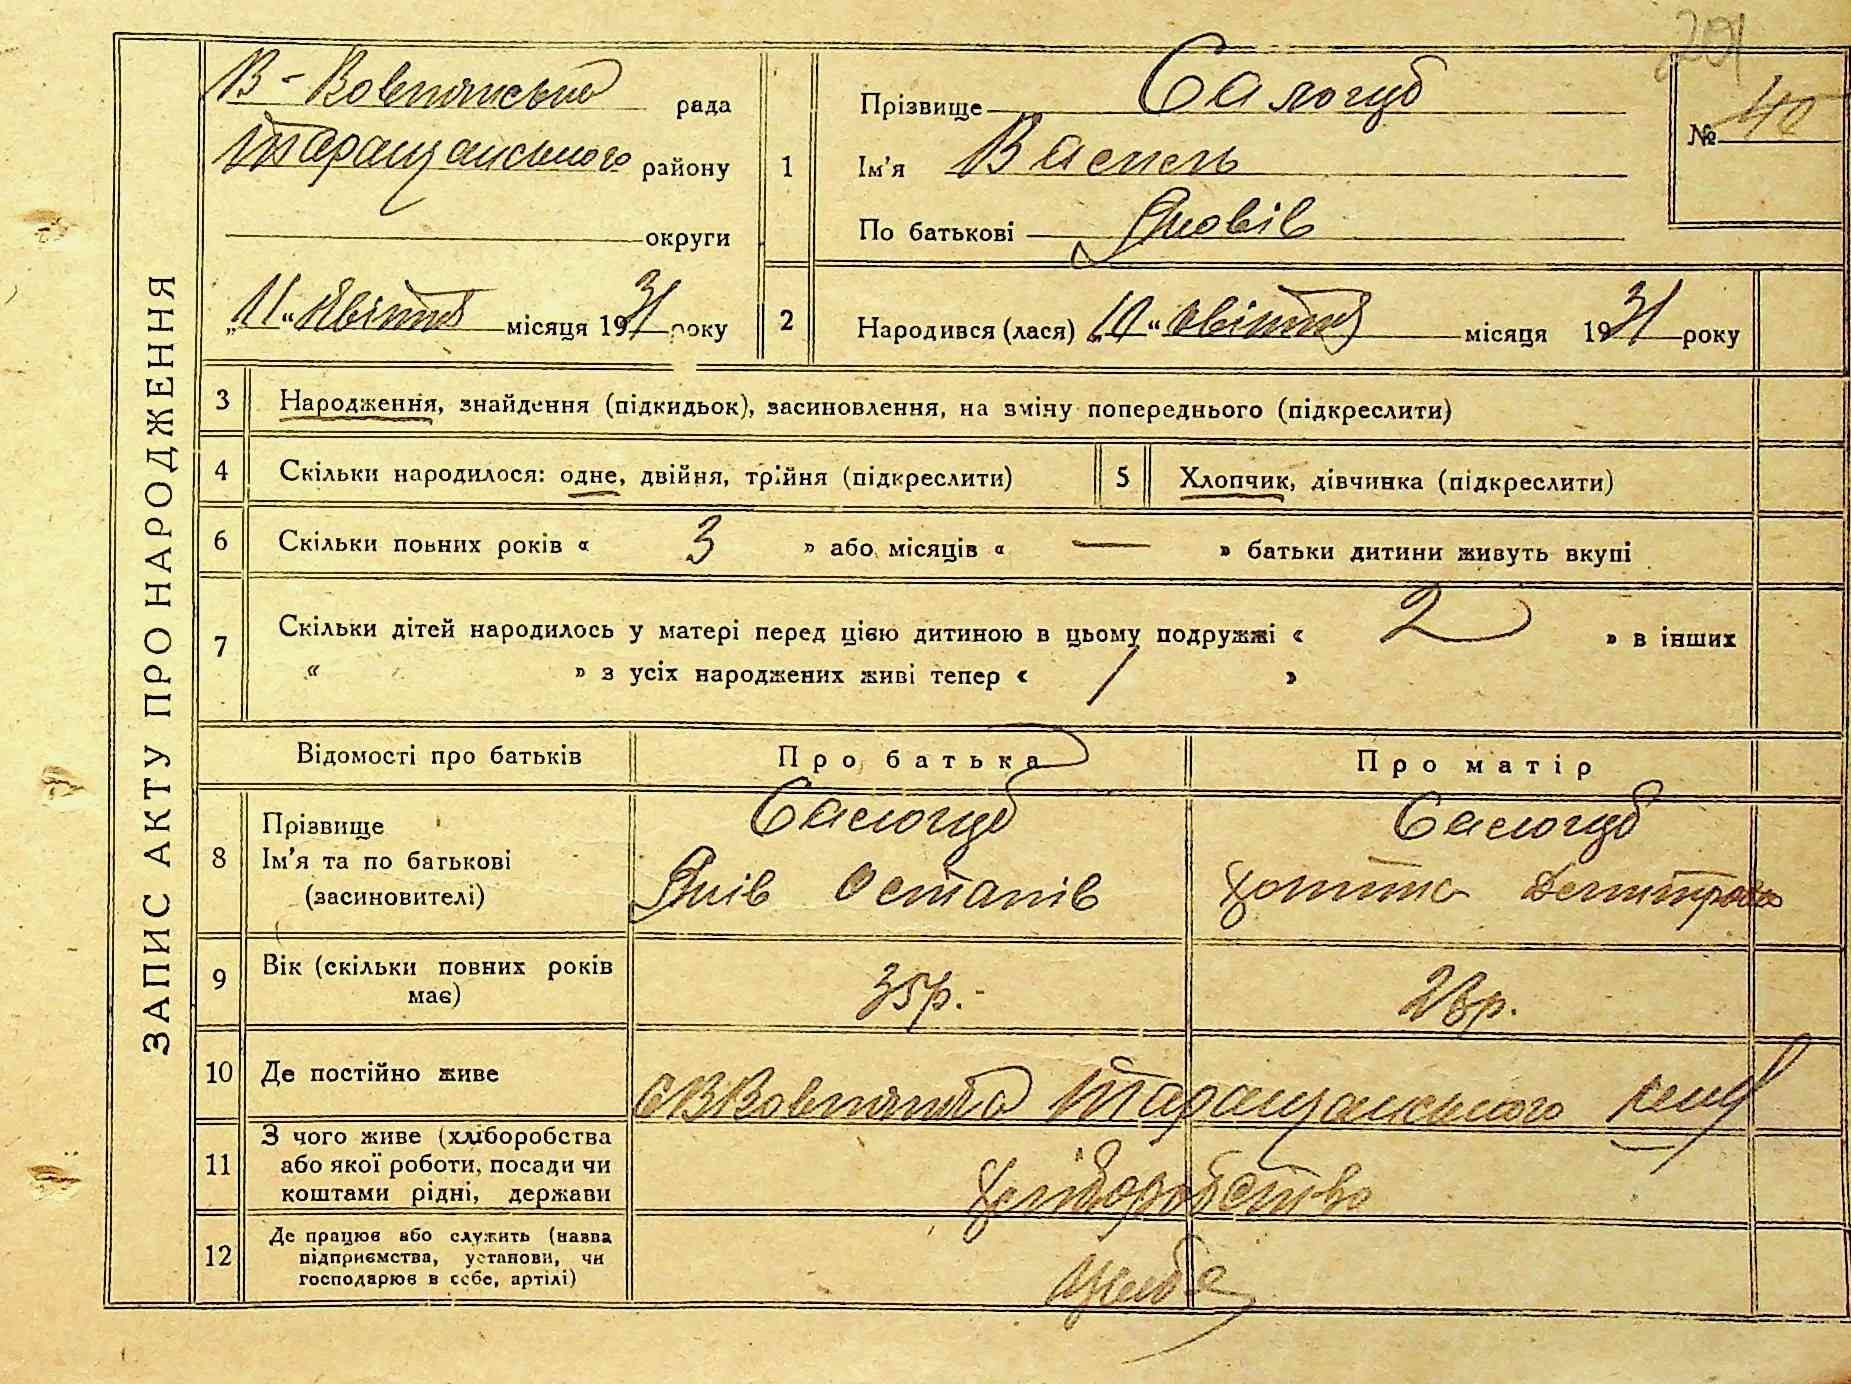 201
ЗАПИС АКТУ ПРО НАРОДЖЕННЯ
В-Вовнянська рада
Таращанського району
округи
„11“ квітня місяця 1931 року
1
Прізвище Салогуб
Ім'я Василь
По батькові Яковів
№ 40
2
Народився (лася) „10“ квітня місяця 1931 року
3 Народження, знайдення (підкидьок), засиновлення, на зміну попереднього (підкреслити)
4 Скільки народилося: одне, двійня, трійня (підкреслити) 5 Хлопчик, дівчинка (підкреслити)
6 Скільки повних років « 3 » або місяців « — » батьки дитини живуть вкупі
7 Скільки дітей народилось у матері перед цією дитиною в цьому подружжі « 2 » в інших
« » з усіх народжених живі тепер « 1 »
Відомості про батьків Про батька Про матір
8 Прізвище Салогуб Салогуб
Ім'я та по батькові Яків Остапів Дмитрова
(засиновителі)
9 Вік (скільки повних років має) 35р.- 28р.
10 Де постійно живе с В Вовнянка Таращанського
11 З чого живе (хліборобства або якої роботи, посади чи коштами рідні, держави хліборобство
12 Де працює або служить (назва підприємства, установи, чи господарює в себе, артілі)